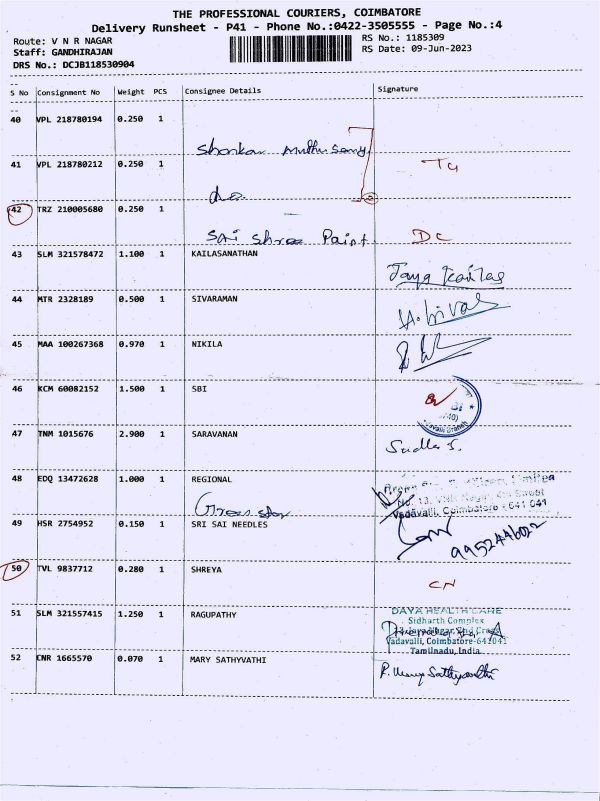 THE PROFESSIONAL COURIERS, COIMBATORE
Delivery Runsheet - P41 - Phone No.:0422-3505555 - Page No.:4
Route: V N R NAGAR RS No.: 1185309
Staff: GANDHIRAJAN RS Date: 09-Jun-2023
DRS No.: DCJB118530904
S No Consignment No Weight PCS Consignee Details Signature
40 VPL 218780194 0.250 1
Shankar Muthu Samy
41 VPL 218780212 0.250 1
do
42 TRZ 210005680 0.250 1
Sai Shree Paint DC
43 SLM 321578472 1.100 1 KAILASANATHAN
Jaya Kailas
44 MTR 2328189 0.500 1 SIVARAMAN
45 MAA 100267368 0.970 1 NIKILA
46 KCM 60082152 1.500 1 SBI
47 TNM 1015676 2.900 1 SARAVANAN
48 EDQ 13472628 1.000 1 REGIONAL
No. 13, VNR Nagar,
Vadavalli, Coimbatore - 641 041
49 HSR 2754952 0.150 1 SRI SAI NEEDLES
9952446022
50 TVL 9837712 0.280 1 SHREYA
CN
51 SLM 321557415 1.250 1 RAGUPATHY
DAYA HEALTH CARE
Sidharth Complex
Vadavalli, Coimbatore-641041
Tamilnadu, India
52 CNR 1665570 0.070 1 MARY SATHYVATHI
P. Mary Sathyavathi